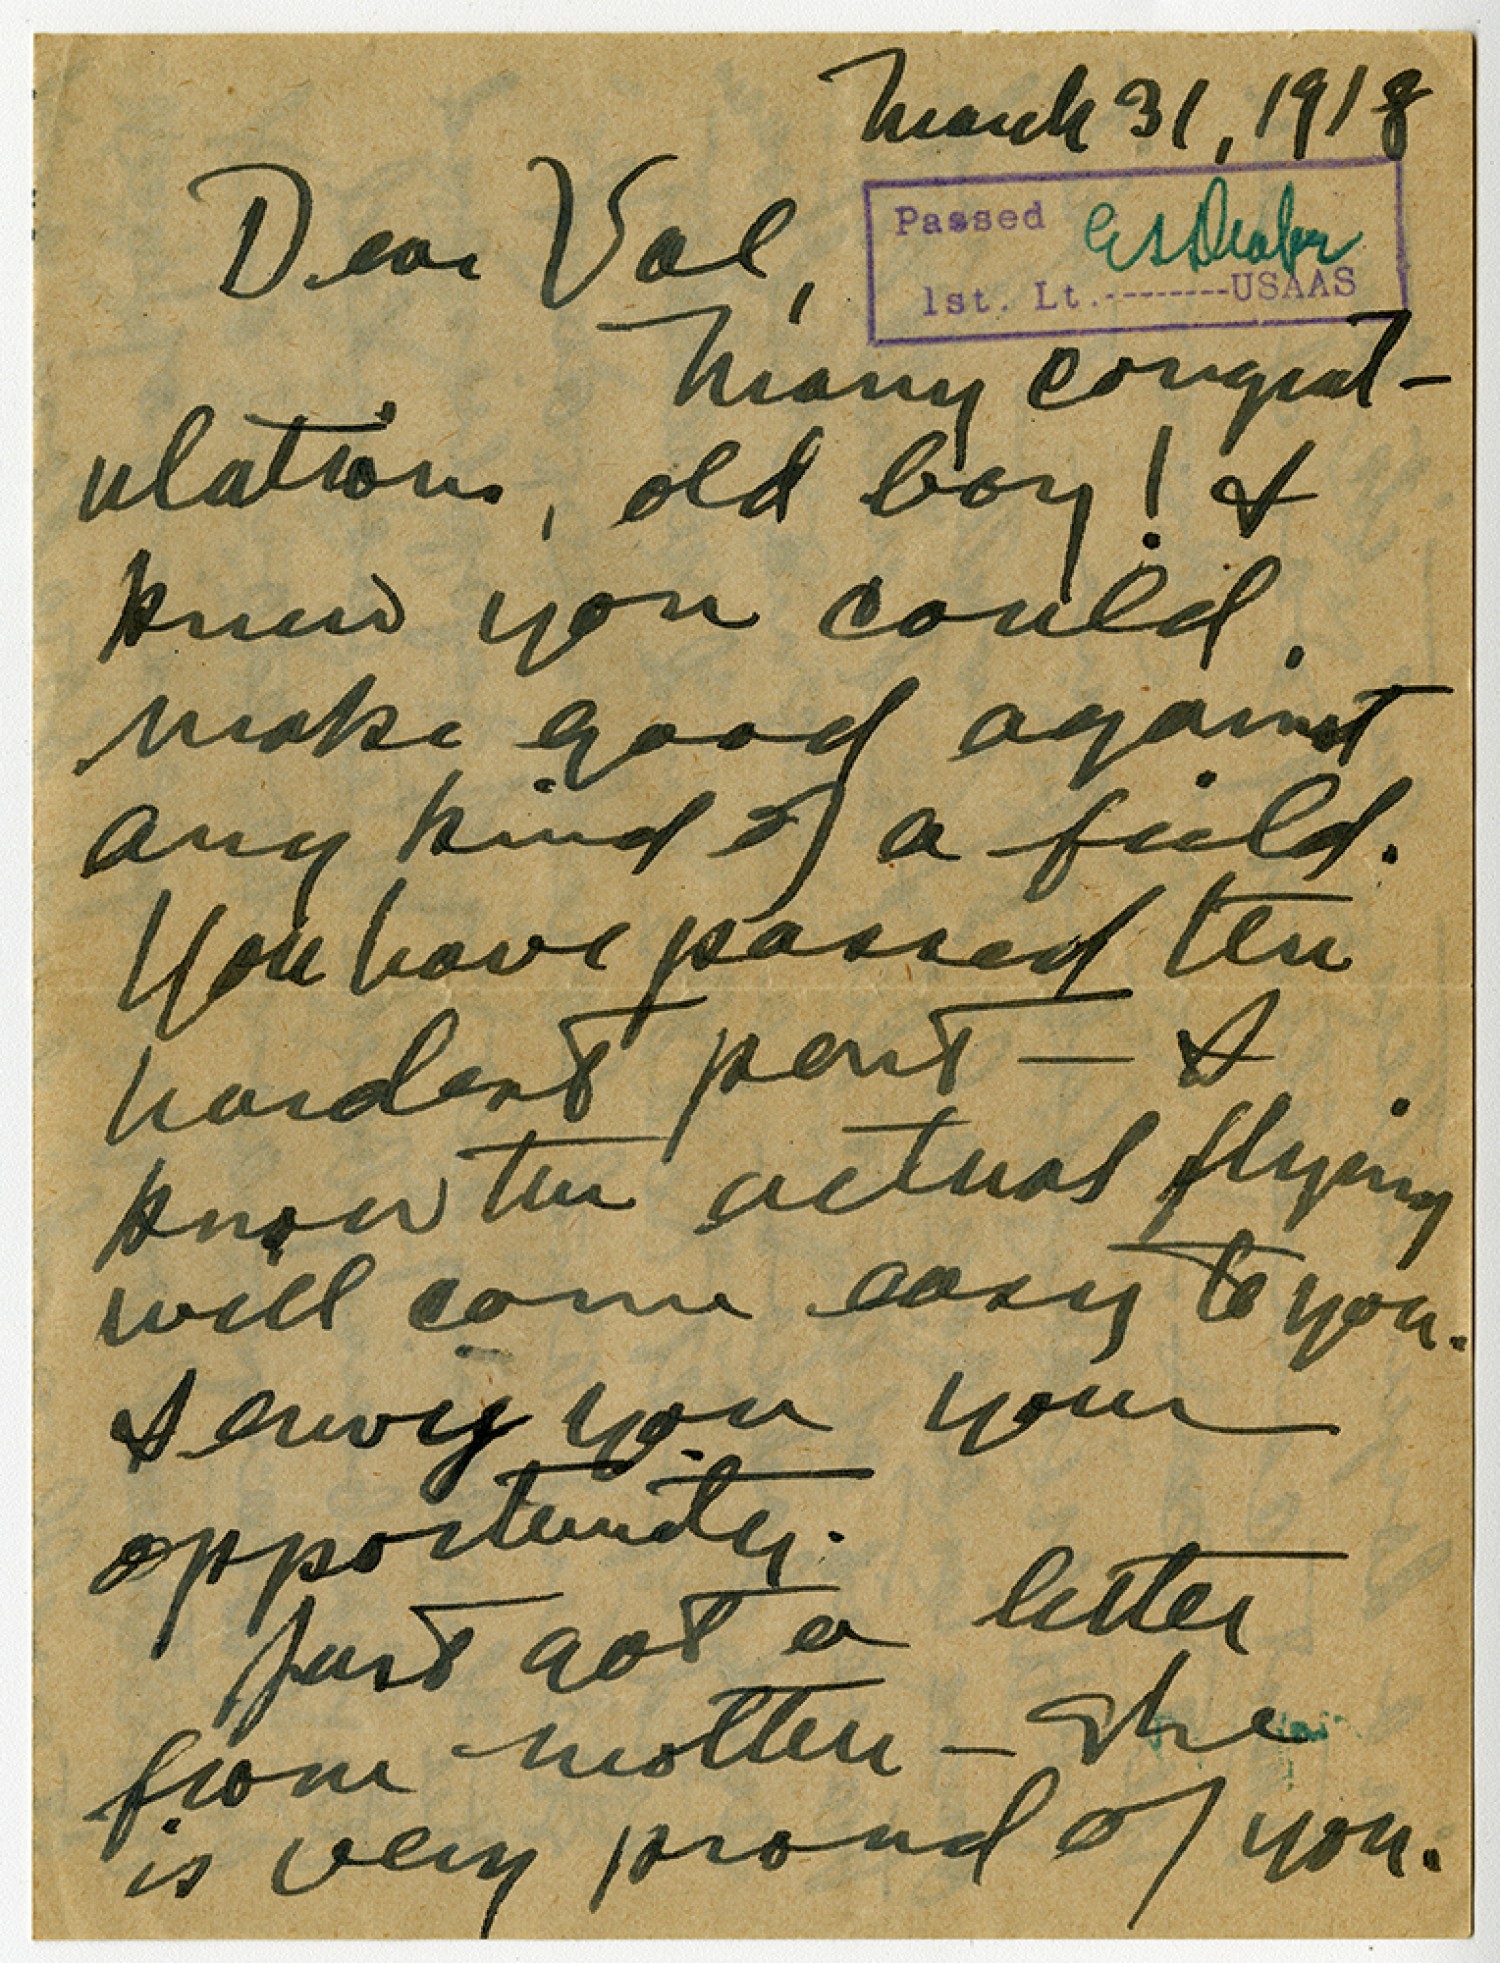 March 31, 1918
Dear Val,
Passed
1st. Lt.--------USAAS
Many congrat-
ulations, old boy! I
knew you could
make good against
any kind of a field.
You have passed the
hardest part — I
know the actual flying
will come easy to you.
I envy you your
opportunity.
Just got a letter
from mother — She
is very proud of you.